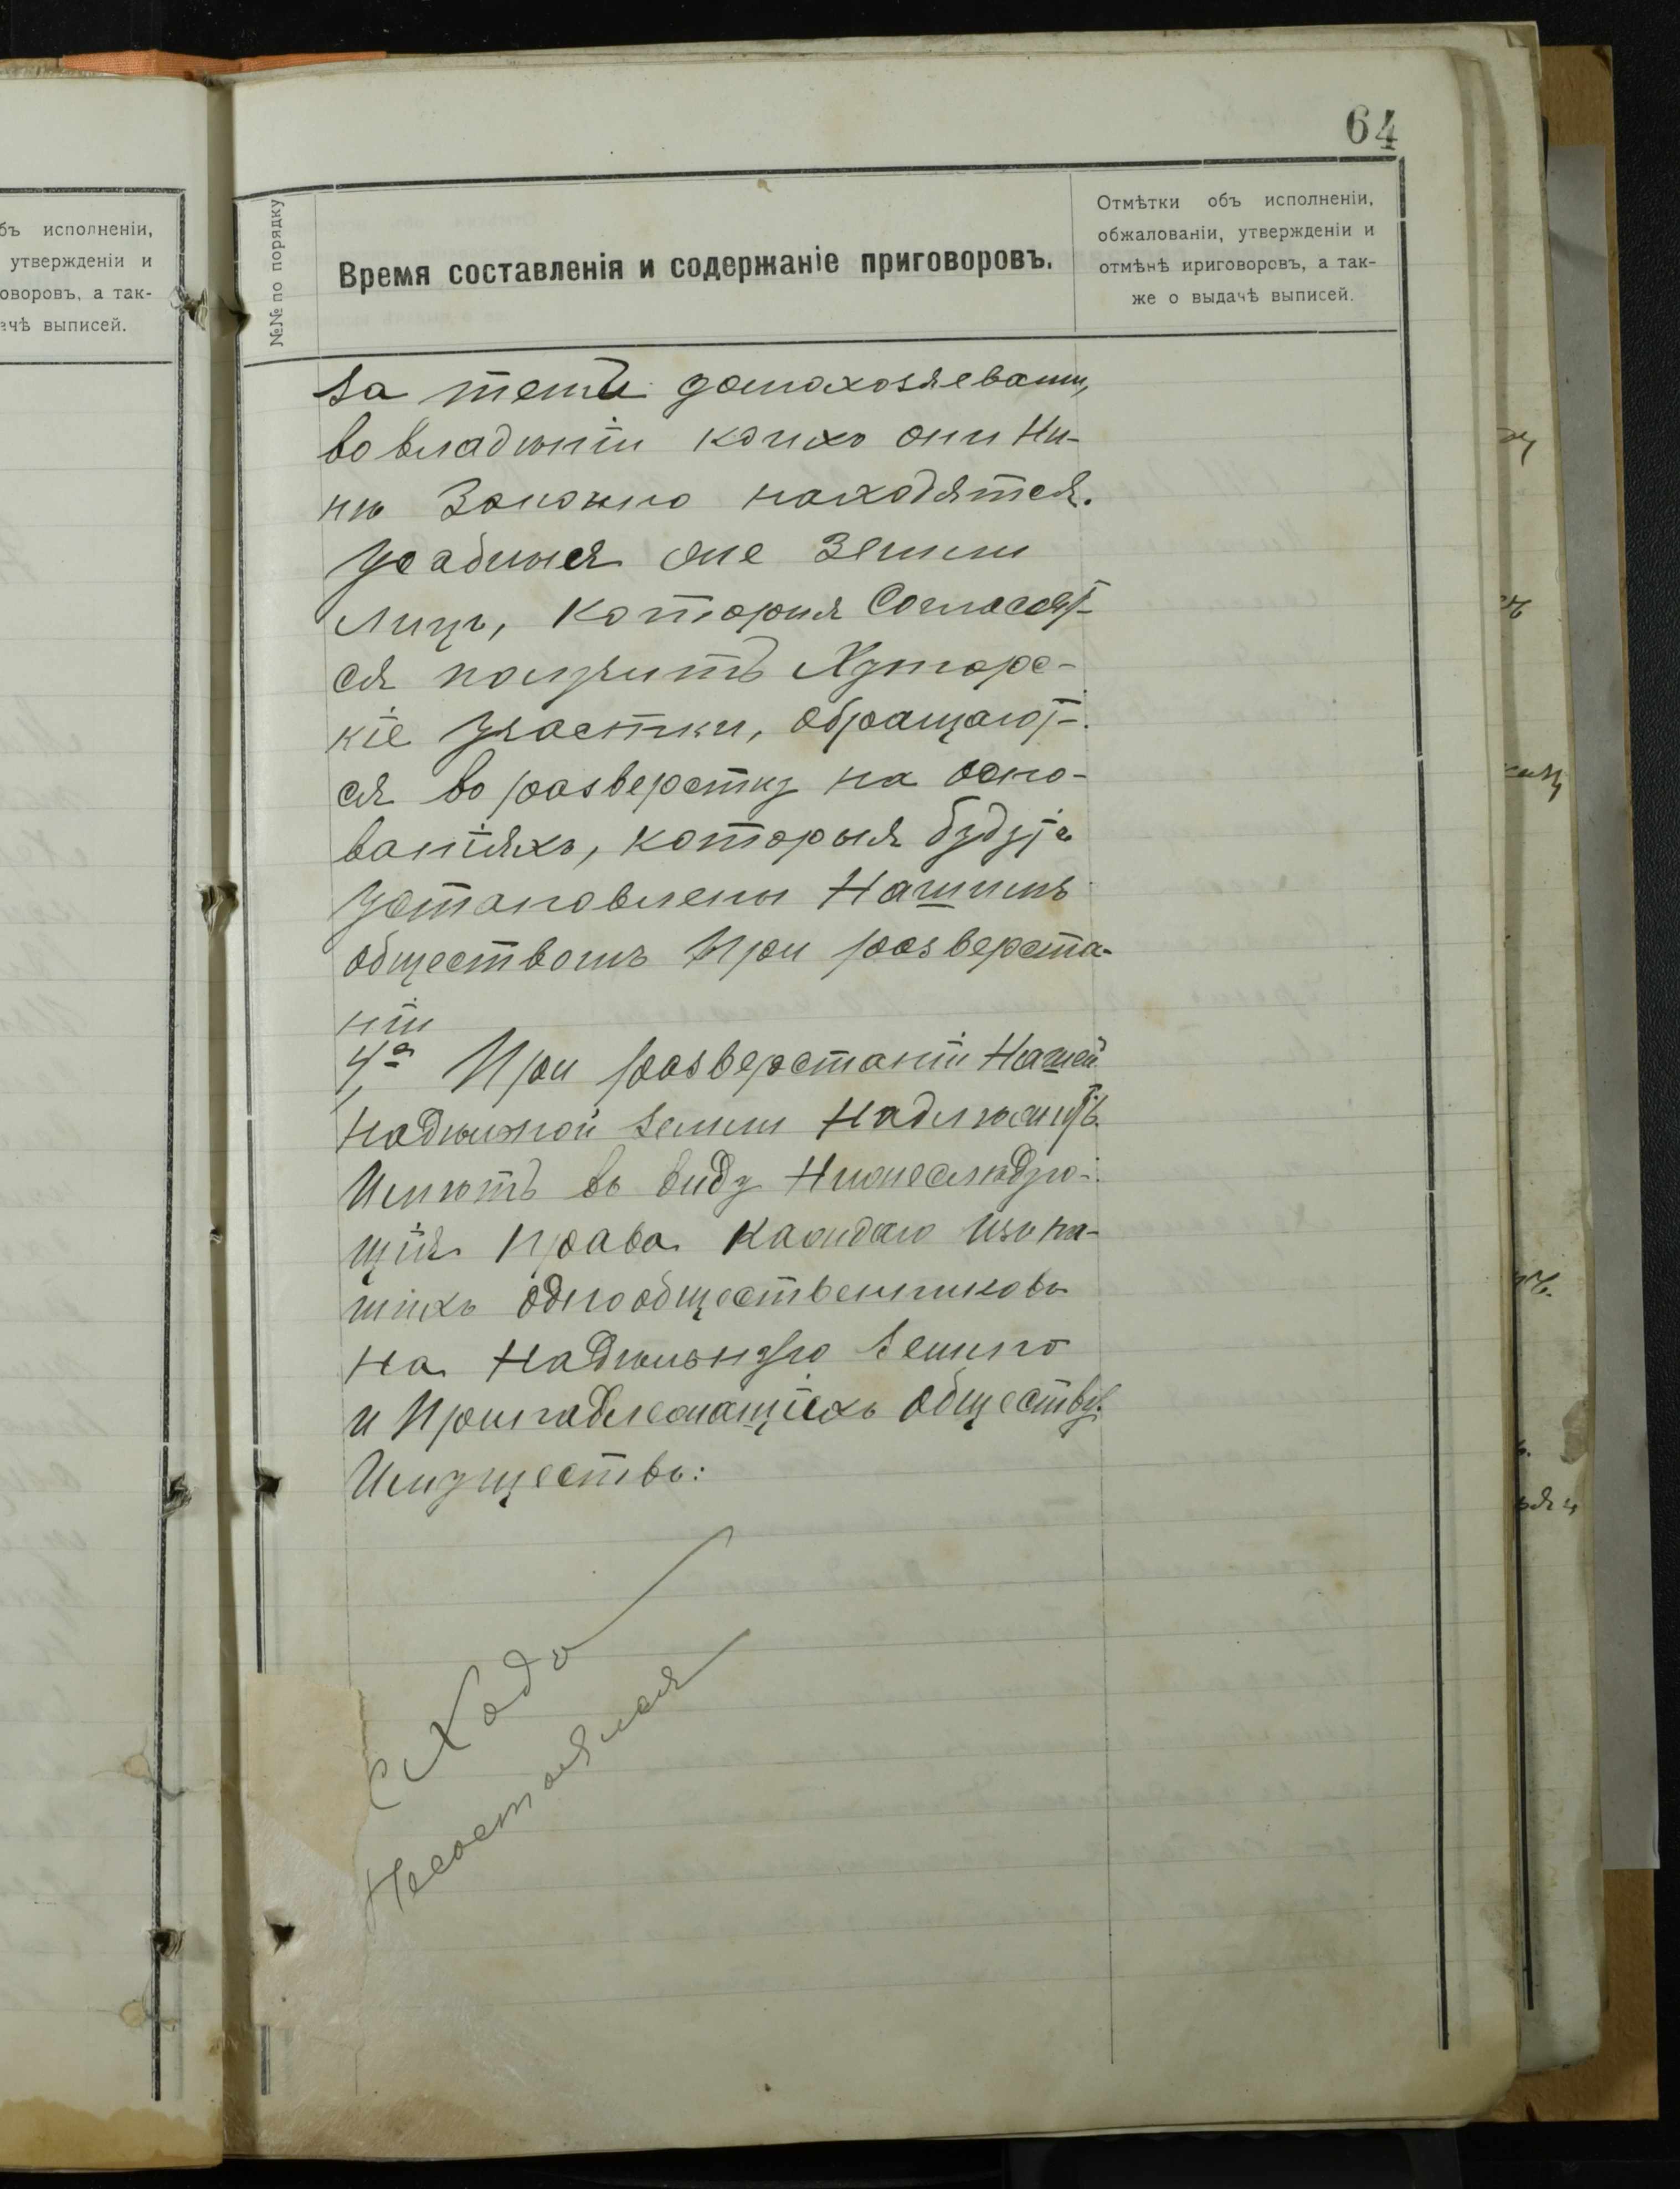 64
бъ исполненіи,
утвержденіи и
оворовъ, а так-
ачѣ выписей.
№№ по порядку
Время составленія и содержаніе приговоровъ.
Отмѣтки объ исполненіи,
обжалованіи, утвержденіи и
отмѣнѣ ириговоровъ, а так-
же о выдачѣ выписей.
за теми домохозяевами,
во владѣніи коихъ они Ны-
нѣ Законно находятся.
Усадбныя же Земли
лицъ, которыя Согласят-
ся получить Хуторс-
кіе участки, обращают-
ся въ разверстку на осно-
ваніяхъ, которыя будутъ
установлены Нашимъ
обществомъ При разверста-
ніи
4, а При разверстаніи Нашей
надѣлной земли Надлѣжитъ
Имѣть въ виду Нижеслѣдую-
щія права каждаго изъ на-
шихъ однообщественниковъ
на Надѣльную землю
и Принадлежащіехъ обществу
Имуществъ:
Сходъ
Несостоялся